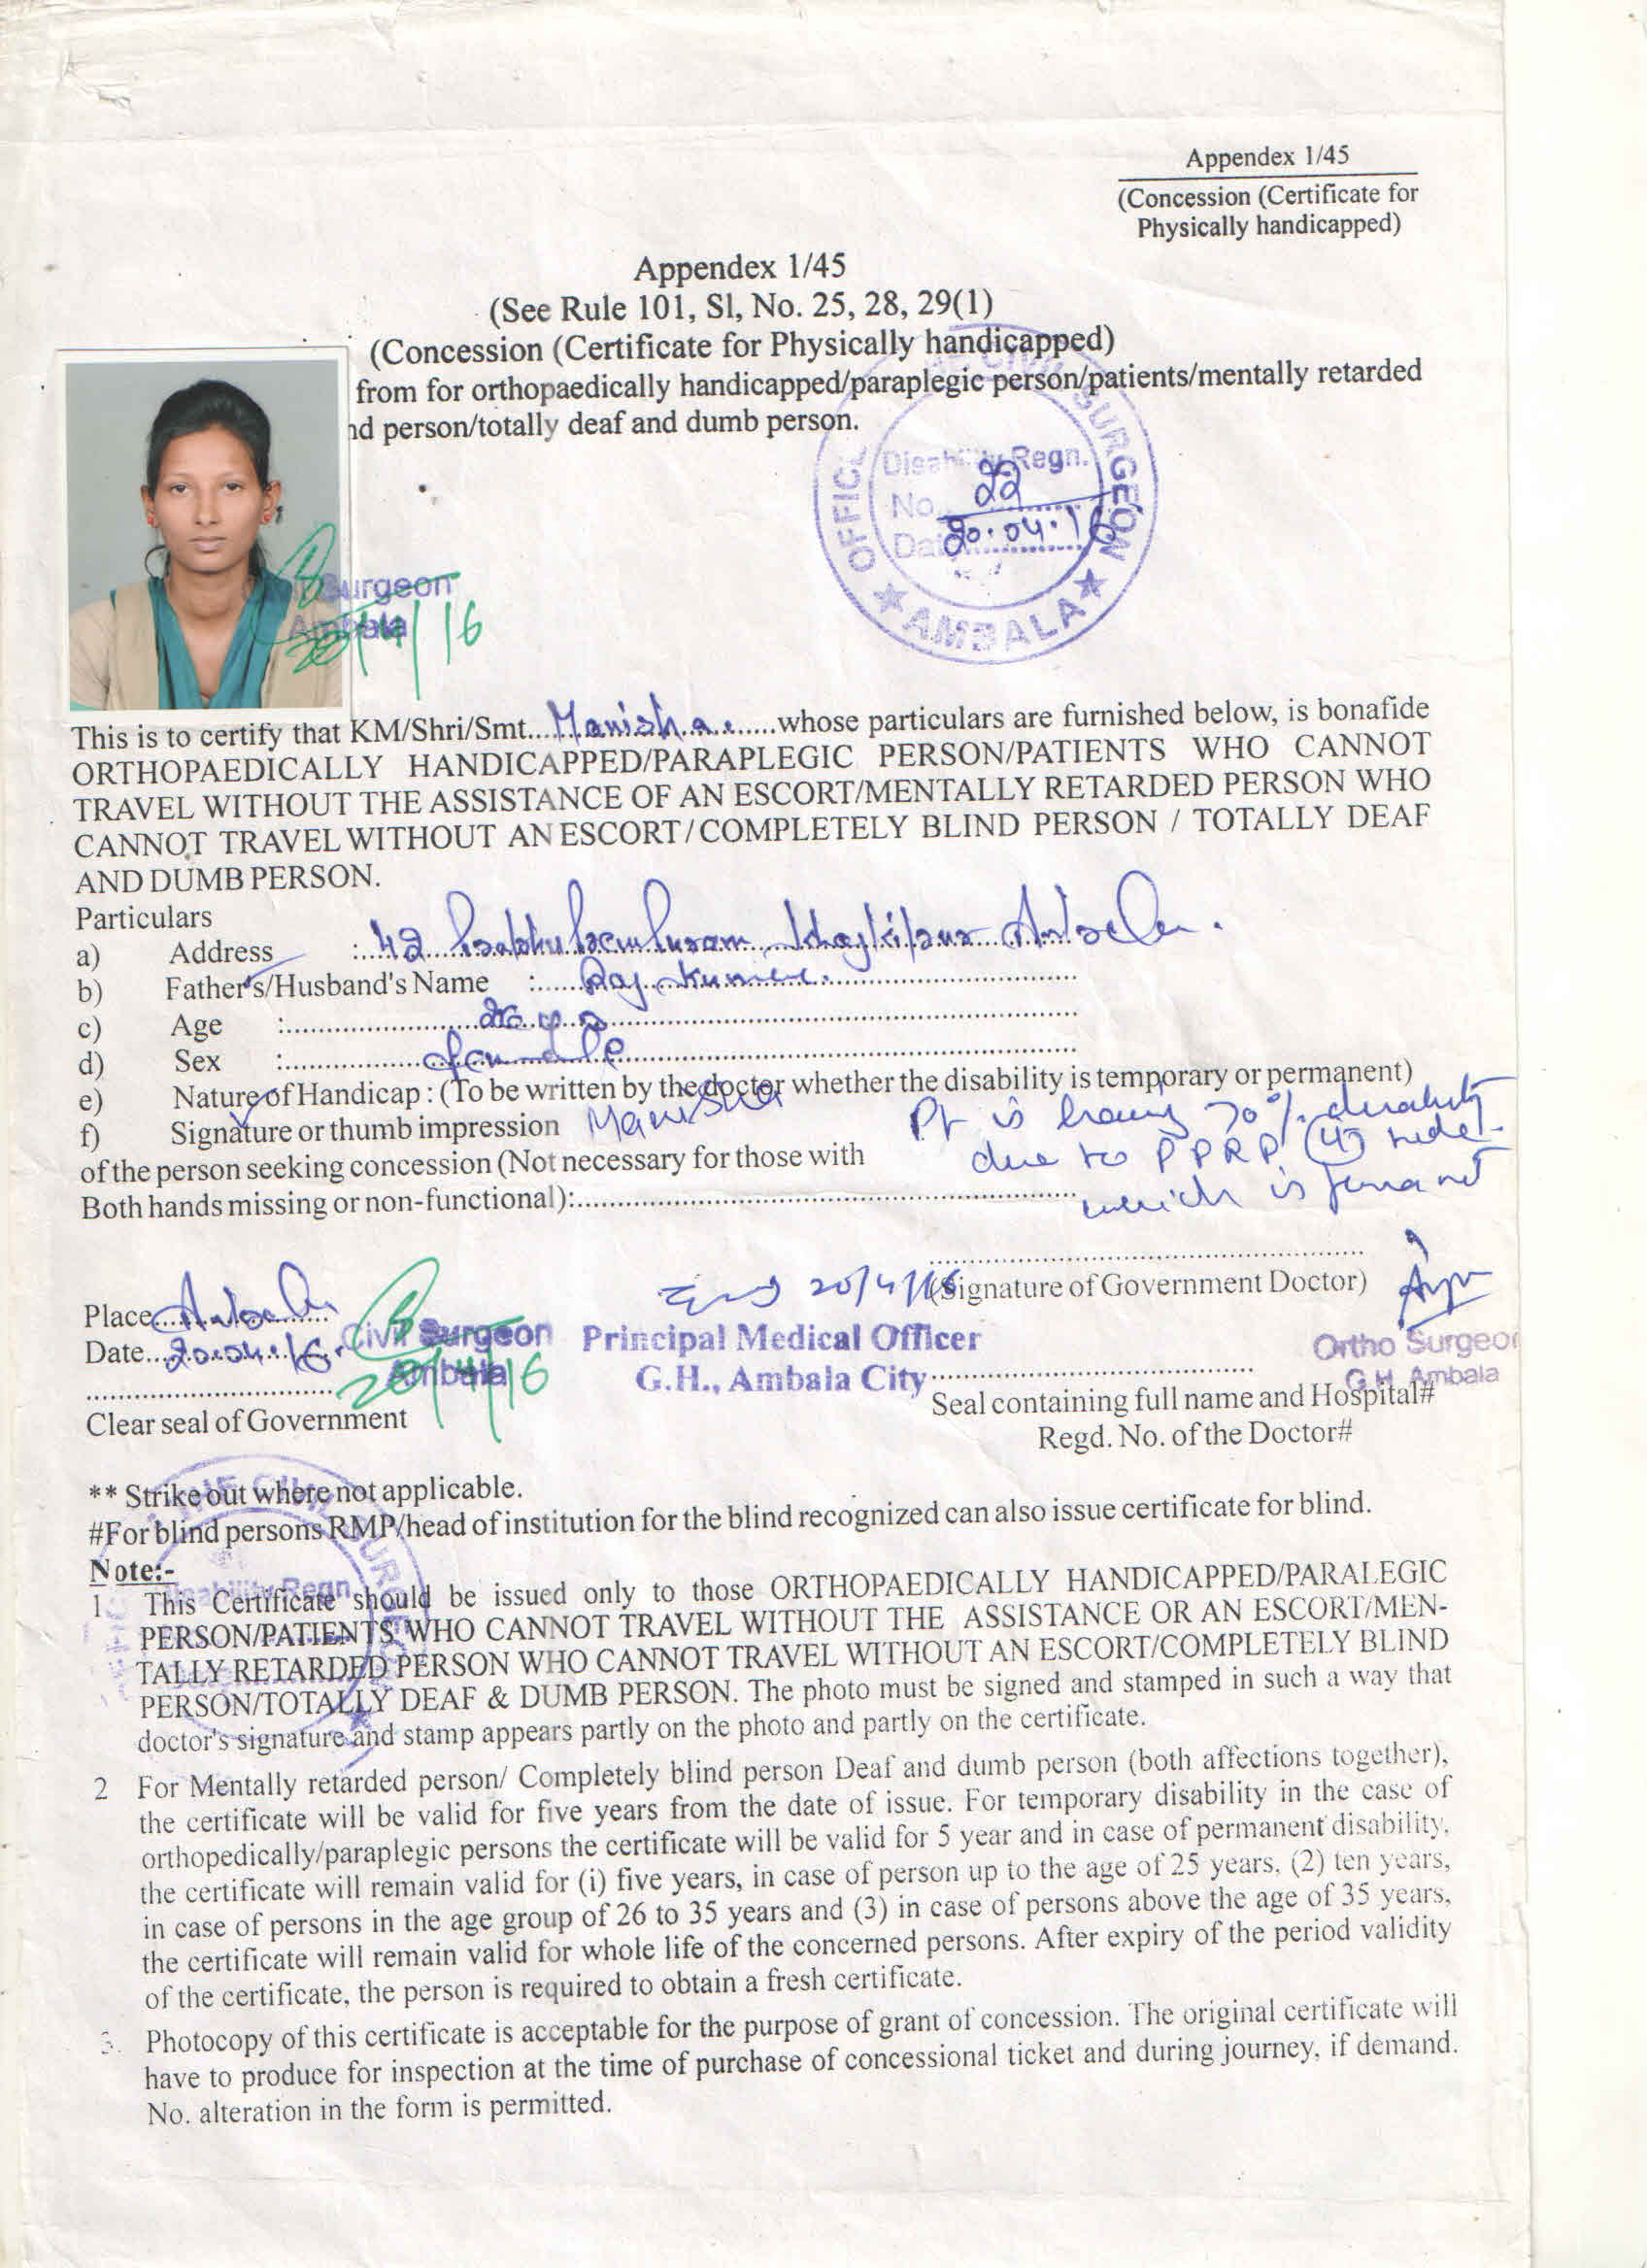 Appendex 1/45
(Concession (Certificate for
Physically handicapped)
Appendex 1/45
(See Rule 101, Sl, No. 25, 28, 29(1)
(Concession (Certificate for Physically handicapped)
from for orthopaedically handicapped/paraplegic person/patients/mentally retarded
nd person/totally deaf and dumb person.
OFFICE SURGEON
Disability Regn.
No. 22
Date 20.04.16
AMBALA
Surgeon
Ambala
20/4/16
This is to certify that KM/Shri/Smt....Manisha.......whose particulars are furnished below, is bonafide
ORTHOPAEDICALLY HANDICAPPED/PARAPLEGIC PERSON/PATIENTS WHO CANNOT
TRAVEL WITHOUT THE ASSISTANCE OF AN ESCORT/MENTALLY RETARDED PERSON WHO
CANNOT TRAVEL WITHOUT AN ESCORT/COMPLETELY BLIND PERSON / TOTALLY DEAF
AND DUMB PERSON.
Particulars
a) Address : 42
b) Father's/Husband's Name : Raj Kumar
c) Age :
d) Sex : female
e) Nature of Handicap : (To be written by the doctor whether the disability is temporary or permanent)
f) Signature or thumb impression Manisha
Pt is having 70% disability
of the person seeking concession (Not necessary for those with
due to PPRP
Both hands missing or non-functional):
which is
(Signature of Government Doctor)
20/4/16
Place Ambala
Date 20.04.16
Civil Surgeon
Ambala
20/4/16
Principal Medical Officer
G.H., Ambala City
Ortho Surgeon
G.H. Ambala
Seal containing full name and Hospital#
Clear seal of Government
Regd. No. of the Doctor#
** Strike out where not applicable.
#For blind persons RMP/head of institution for the blind recognized can also issue certificate for blind.
Note:-
1 This Certificate should be issued only to those ORTHOPAEDICALLY HANDICAPPED/PARALEGIC
PERSON/PATIENTS WHO CANNOT TRAVEL WITHOUT THE ASSISTANCE OR AN ESCORT/MEN-
TALLY RETARDED PERSON WHO CANNOT TRAVEL WITHOUT AN ESCORT/COMPLETELY BLIND
PERSON/TOTALLY DEAF & DUMB PERSON. The photo must be signed and stamped in such a way that
doctor's signature and stamp appears partly on the photo and partly on the certificate.
2 For Mentally retarded person/ Completely blind person Deaf and dumb person (both affections together),
the certificate will be valid for five years from the date of issue. For temporary disability in the case of
orthopedically/paraplegic persons the certificate will be valid for 5 year and in case of permanent disability,
the certificate will remain valid for (i) five years, in case of person up to the age of 25 years, (2) ten years,
in case of persons in the age group of 26 to 35 years and (3) in case of persons above the age of 35 years,
the certificate will remain valid for whole life of the concerned persons. After expiry of the period validity
of the certificate, the person is required to obtain a fresh certificate.
3. Photocopy of this certificate is acceptable for the purpose of grant of concession. The original certificate will
have to produce for inspection at the time of purchase of concessional ticket and during journey, if demand.
No. alteration in the form is permitted.